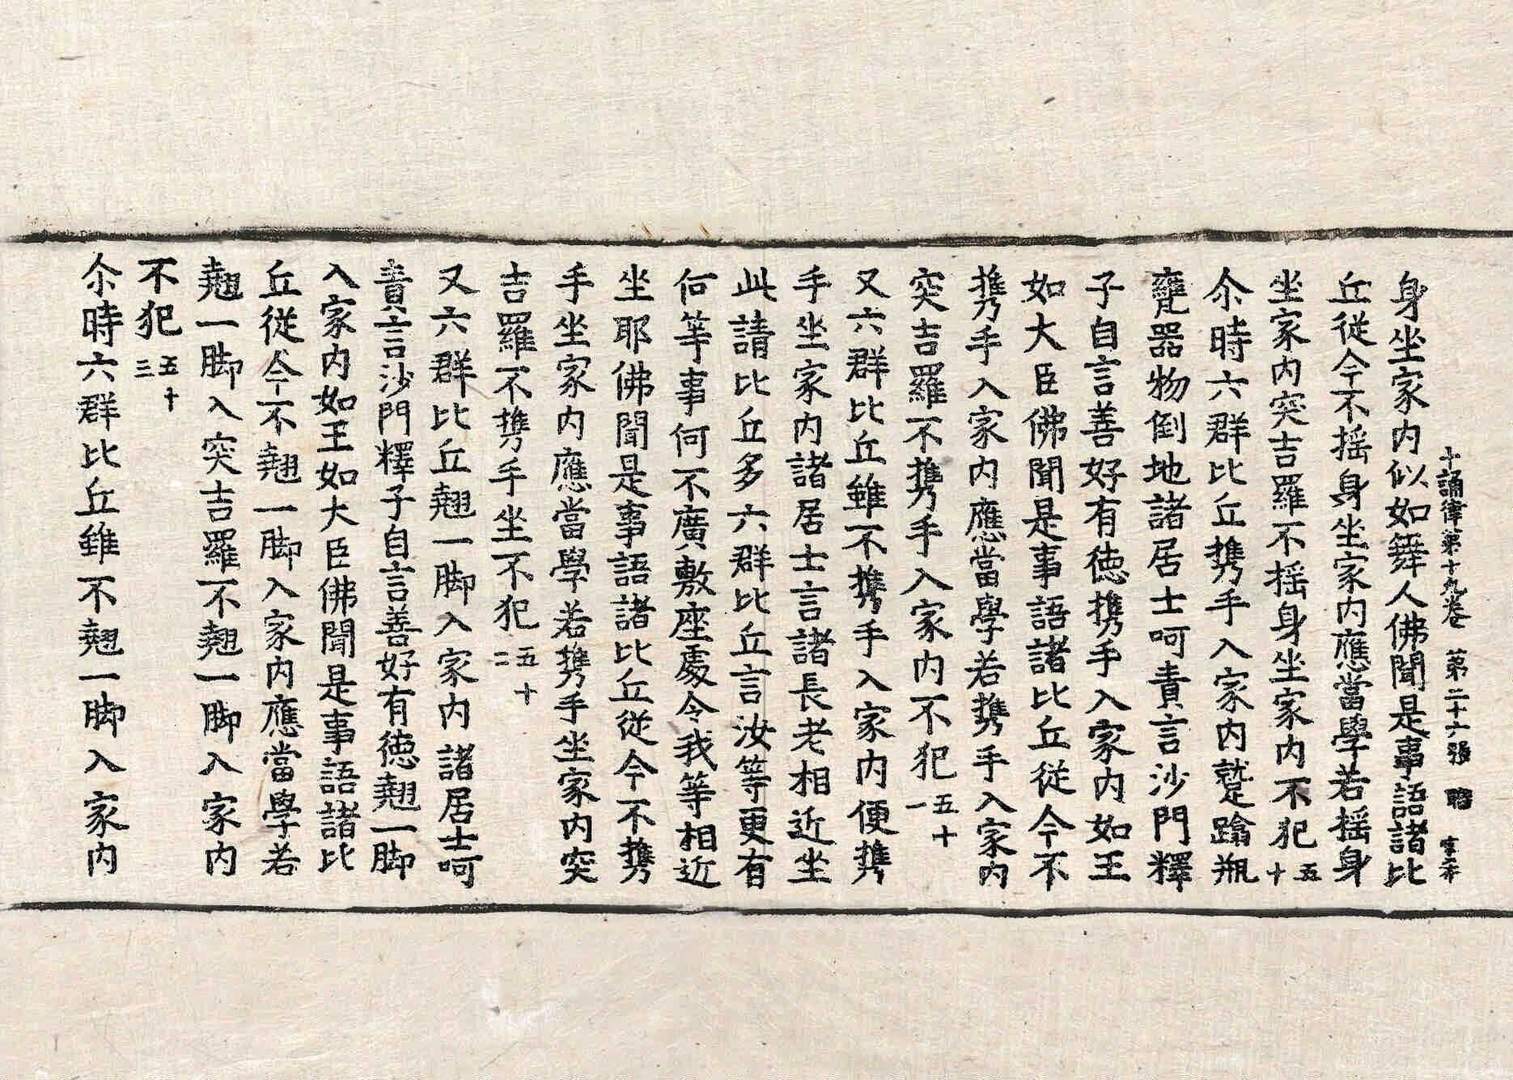 十誦律第十九卷　第二十六張
身坐家内似如舞人佛聞是事語諸比
丘從今不摇身坐家内應當學若摇身
坐家内突吉羅不摇身坐家内不犯五十
尒時六群比丘携手入家内蹵蹹瓶
甕器物倒地諸居士呵責言沙門釋
子自言善好有德携手入家内如王
如大臣佛聞是事語諸比丘從今不
携手入家内應當學若携手入家内
突吉羅不携手入家内不犯五十一
又六群比丘雖不携手入家内便携
手坐家内諸居士言諸長老相近坐
此請比丘多六群比丘言汝等更有
何等事何不廣敷座處令我等相近
坐耶佛聞是事語諸比丘從今不携
手坐家内應當學若携手坐家内突
吉羅不携手坐不犯五十二
又六群比丘翹一脚入家内諸居士呵
責言沙門釋子自言善好有德翹一脚
入家内如王如大臣佛聞是事語諸比
丘從今不翹一脚入家内應當學若
翹一脚入突吉羅不翹一脚入家内
不犯五十三
尒時六群比丘雖不翹一脚入家内